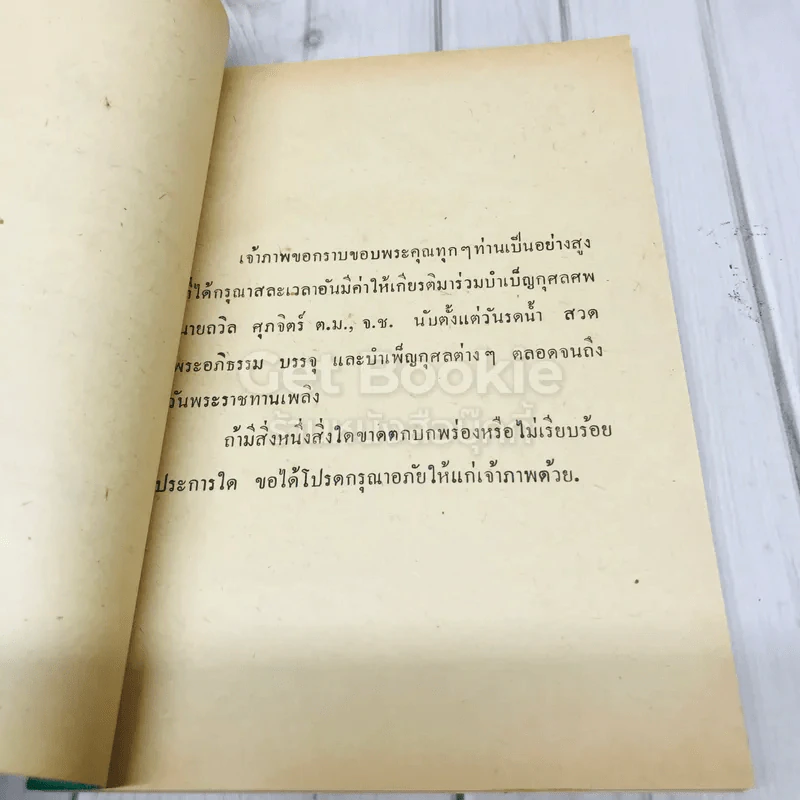 เจ้าภาพขอกราบขอบพระคุณทุกๆท่านเป็นอย่างสูง
ที่ได้กรุณาสละเวลาอันมีค่าให้เกียรติมาร่วมบำเบ็ญกุศลศพ
นายถวิล ศุภจิตร์ ต.ม., จ.ช. นับตั้งแต่วันรดน้ำ สวด
พระอภิธรรม บรรจุ และบำเพ็ญกุศลต่างๆ ตลอดจนถึง
วันพระราชทานเพลิง
ถ้ามีสิ่งหนึ่งสิ่งใดขาดตกบกพร่องหรือไม่เรียบร้อย
ประการใด ขอได้โปรดกรุณาอภัยให้แก่เจ้าภาพด้วย.
Get Bookie